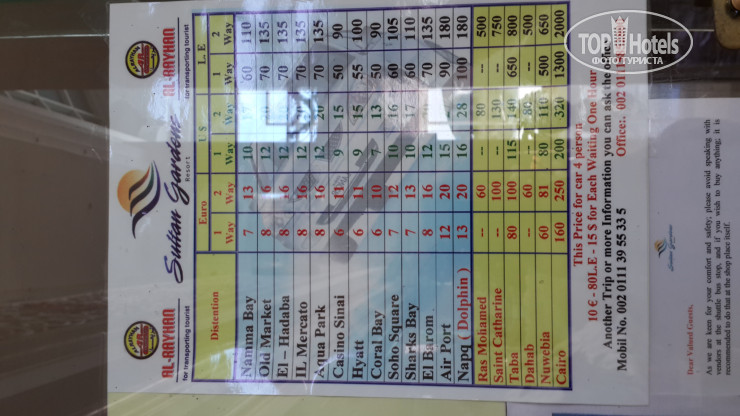 AL-RAYHAN
for transporting tourist
Sultan Gardens
Resort
AL-RAYHAN
for transporting tourist
Distention Euro U S L. E
1 Way 2 Way 1 Way 2 Way 1 Way 2 Way
Namma Bay 7 13 10 60 110
Old Market 8 16 12 70 135
El – Hadaba 8 16 12 70 135
IL Mercato 8 16 12 70 135
Aqua Park 8 16 12 20 70 135
Casino Sinai 6 11 9 15 50 90
Hyatt 6 11 9 15 55 100
Coral Bay 6 10 7 13 50 90
Soho Square 7 12 10 16 60 105
Sharks Bay 7 13 10 17 60 110
El Baroom 8 16 12 70 135
Air Port 12 20 15 90 180
Napq ( Dolphin ) 13 20 16 28 100 180
Ras Mohamed -- 60 -- 80 -- 500
Saint Catharine -- 100 -- 130 -- 750
Taba 80 100 115 140 650 800
Dahab -- 60 -- 80 -- 500
Nuwebia 60 81 80 110 500 650
Cairo 160 250 200 320 1300 2000
This Price for car 4 person
10 € - 80L.E - 15 $ for Each Waiting One Hour
Another Trip or more Information you can ask the
Mobil No. 002 0111 39 55 33 5 Office:. 002 011
Sultan Gardens
Dear Valued Guests,
As we are keen for your comfort and safety, please avoid speaking with
vendors at the shuttle bus stop, and if you wish to buy anything, it is
recommended to do that at the shop place itself.
TOP Hotels
ФОТО ТУРИСТА